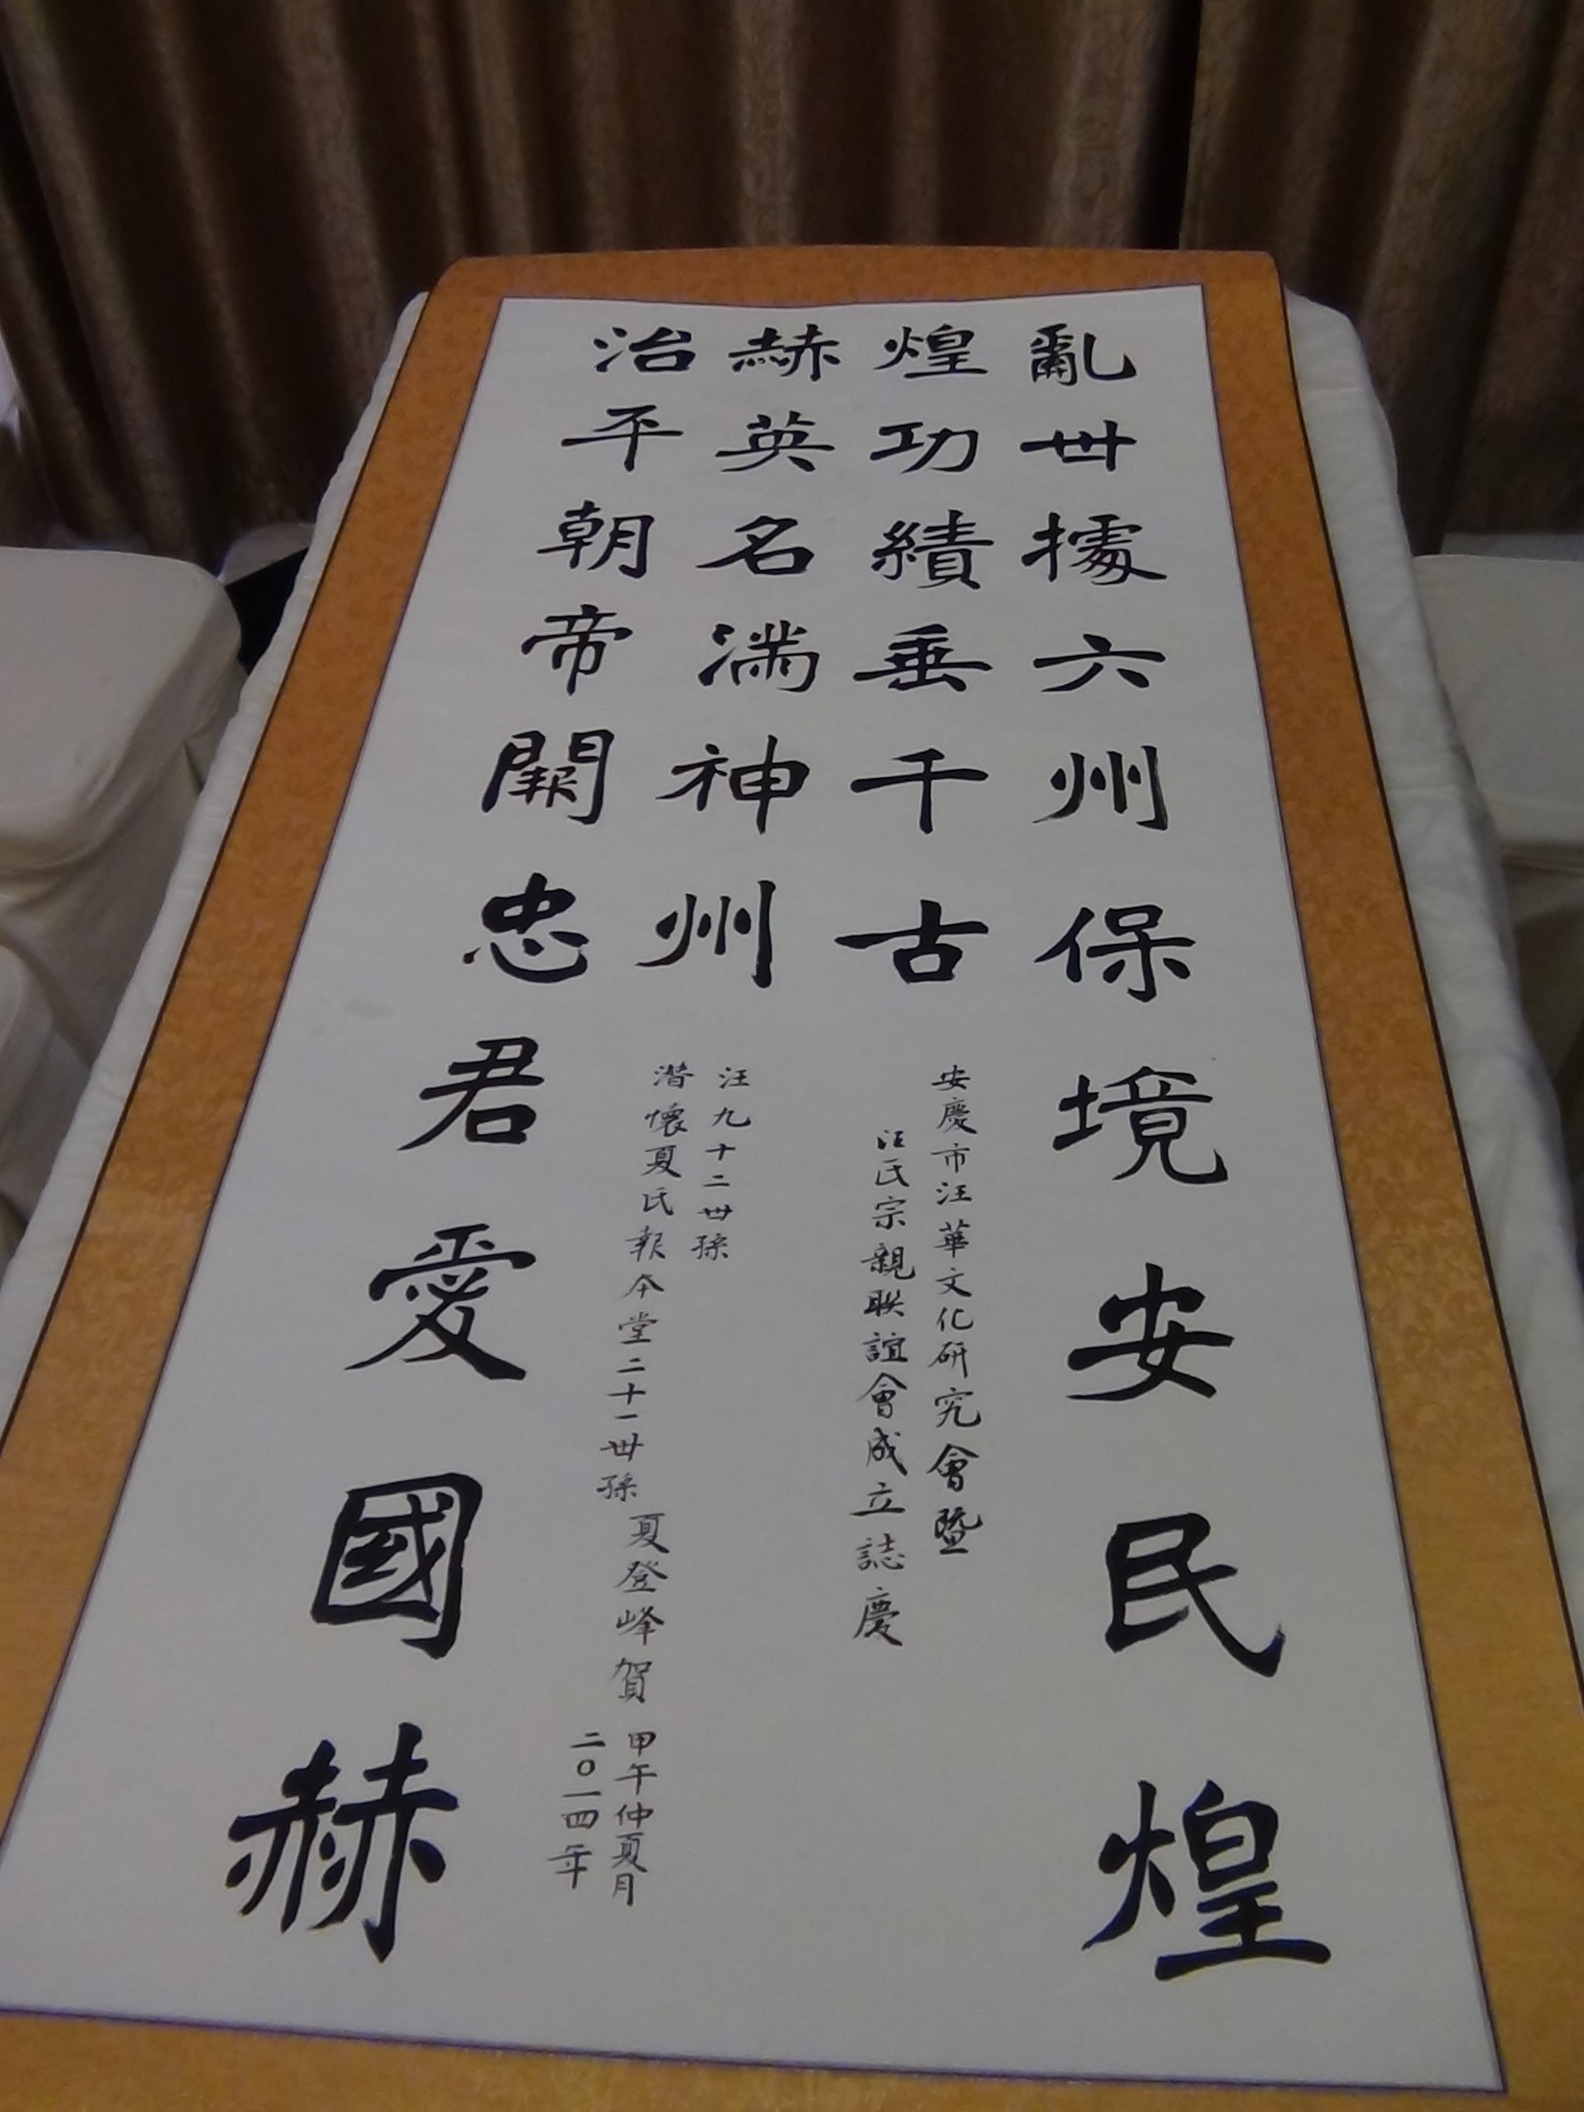 亂世據六州保境安民煌
煌功績垂千古
安慶市汪華文化研究會暨
汪氏宗親聯誼會成立誌慶
治平朝帝闕忠君愛國赫
赫英名滿神州
汪九十二世孫
潛懷夏氏報本堂二十一世孫
夏登峰賀
甲午仲夏月
二〇一四年